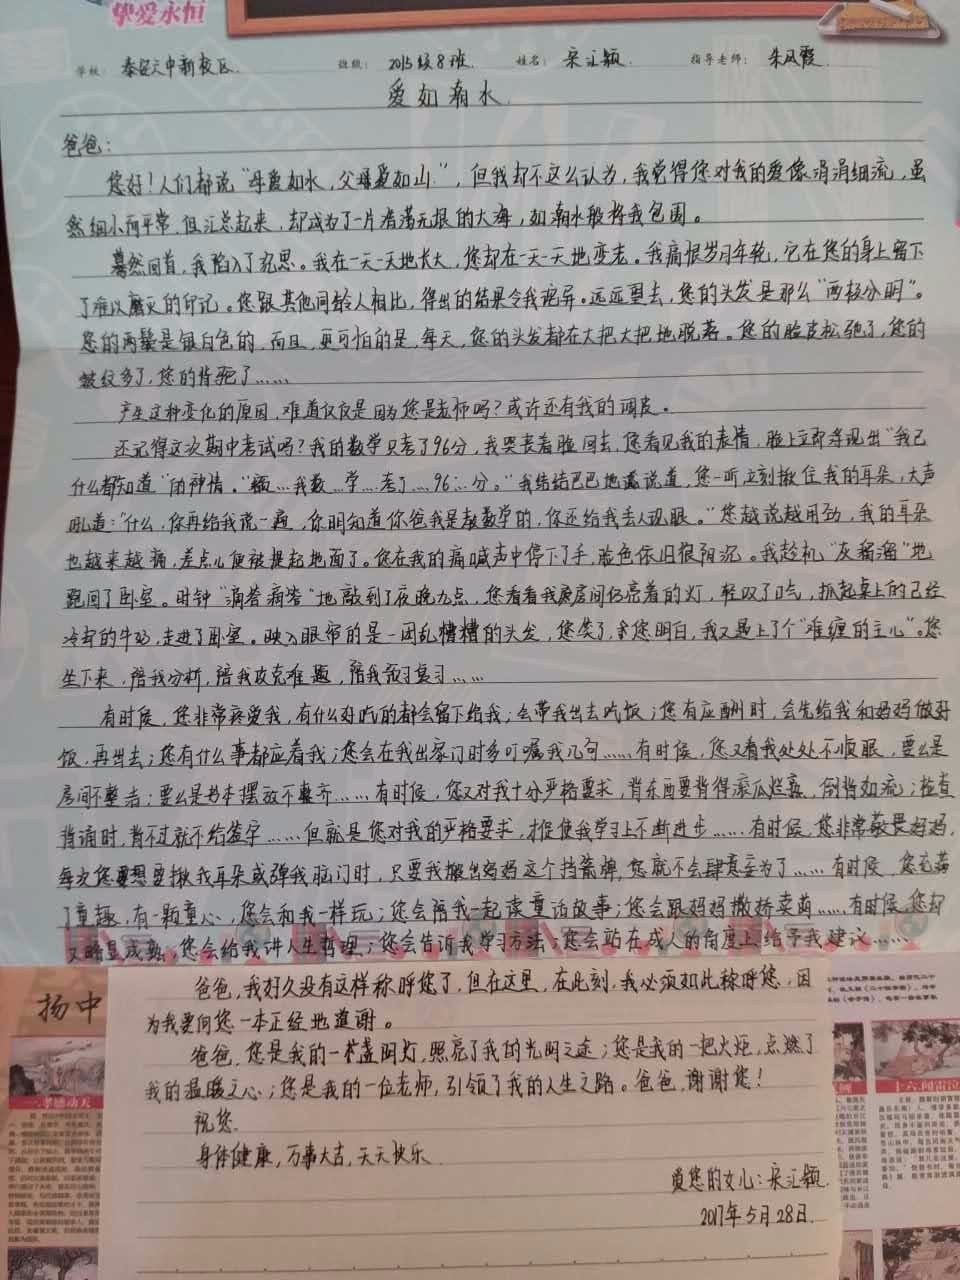 挚爱永恒
学校： 泰安六中新校区 班级： 2015级8班 姓名： 宋汇颖 指导老师： 朱凤霞
爱如潮水
爸爸：
您好！人们都说“母爱如水，父爱如山”，但我却不这么认为，我觉得您对我的爱像涓涓细流，虽
然细小而平常，但汇总起来，却成为了一片浩荡无垠的大海，如潮水般将我包围。
蓦然回首，我陷入了沉思。我在一天一天地长大，您却在一天一天地变老。我痛恨岁月年轮，它在您的身上留下
了难以磨灭的印记。您跟其他同龄人相比，得出的结果令我诧异。远远望去，您的头发是那么“两极分明”。
您的两鬓是银白色的，而且，更可怕的是，每天，您的头发都在大把大把地脱落。您的脸皮松弛了，您的
皱纹多了，您的背驼了……
产生这种变化的原因，难道仅仅是因为您是老师吗？或许还有我的调皮。
还记得这次期中考试吗？我的数学只考了96分，我哭丧着脸回去，您看见我的表情，脸上立即浮现出“我已
什么都知道”的神情。“呃…我数…学…考了…96…分。”我结结巴巴地说道，您一听立刻揪住我的耳朵，大声
吼道：“什么，你再给我说一遍，你明知道你爸我是教数学的，你还给我丢人现眼。”您越说越用劲，我的耳朵
也越来越痛，差点儿便被提起地面了。您在我的痛喊声中停下了手，脸色依旧很阴沉。我趁机“灰溜溜”地
跑回了卧室。时钟“滴答滴答”地敲到了夜晚九点，您看看我房间仍亮着的灯，轻叹了口气，抓起桌上的已经
冷却的牛奶，走进了卧室。映入眼帘的是一团乱糟糟的头发，您笑了，您明白，我又遇上了个“难缠的主儿”。您
坐下来，陪我分析，陪我攻克难题，陪我预习复习……
有时候，您非常疼爱我，有什么好吃的都会留下给我；会带我出去吃饭；您有应酬时，会先给我和妈妈做好
饭，再出去；您有什么事都应着我；您会在我出家门时多叮嘱我几句……有时候，您又看我处处不顺眼，要么是
房间不整洁；要么是书本摆放不整齐……有时候，您又对我十分严格要求，背东西要背得滚瓜烂熟，倒背如流；检查
背诵时，背不过就不给签字……但就是您对我的严格要求，才促使我学习上不断进步……有时候，您非常敬畏妈妈，
每次您要想要揪我耳朵或弹我脑门时，只要我搬出妈妈这个挡箭牌，您就不会肆意妄为了……有时候，您充满
了童趣，有一颗童心，您会和我一样玩；您会陪我一起读童话故事；您会跟妈妈撒娇卖萌……有时候，您却
又略显成熟，您会给我讲人生哲理；您会告诉我学习方法；您会站在成人的角度上给予我建议……
爸爸，我好久没有这样称呼您了，但在这里，在此刻，我必须如此称呼您，因
为我要向您一本正经地道谢。
爸爸，您是我的一盏明灯，照亮了我的光明之途；您是我的一把火炬，点燃了
我的温暖之心；您是我的一位老师，引领了我的人生之路。爸爸，谢谢您！
祝您
身体健康，万事大吉，天天快乐
爱您的女儿：宋汇颖
2017年5月28日
扬中
一、孝感动天
十六、闻雷泣